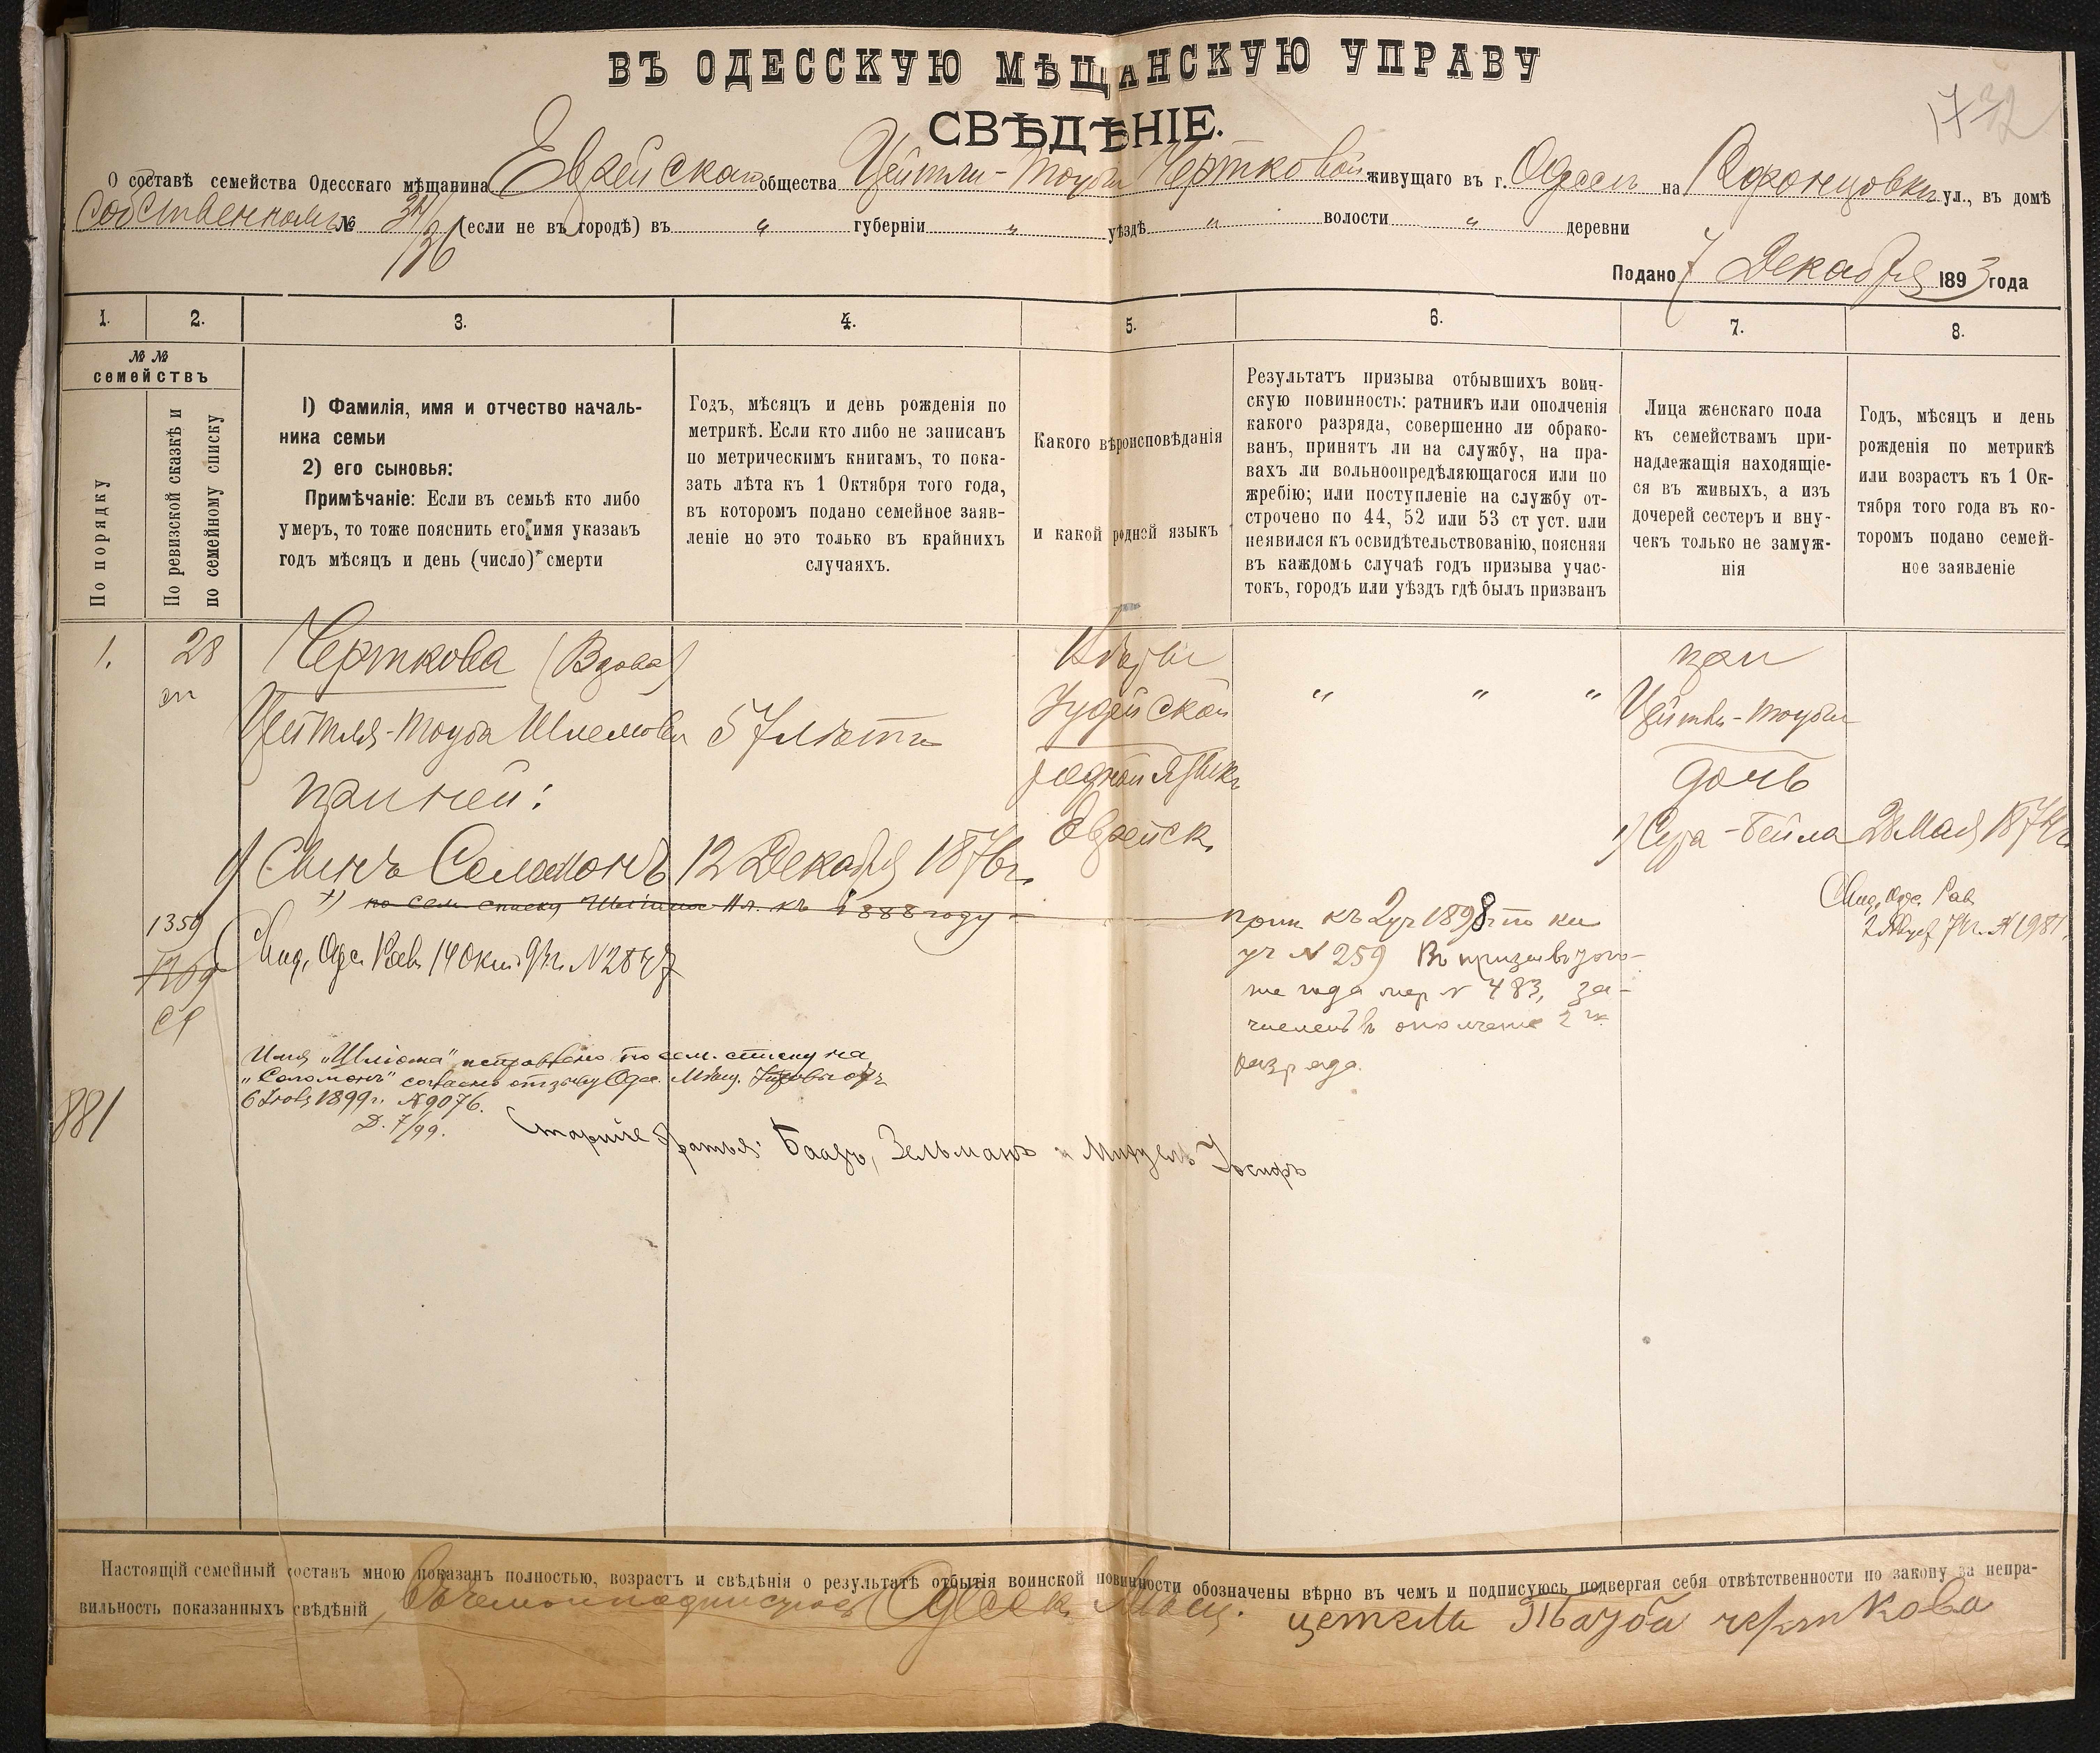 ВЪ ОДЕССКУЮ МѢЩАНСКУЮ УПРАВУ
СВѢДѢНІЕ.
17
О составѣ семейства Одесскаго мѣщанина Еврейскаго общества Цейтли-Тоубы Чертковой живущаго въ г. Одессѣ на Воронцовск. ул., въ домѣ
Собственномъ № 34/36 (если не въ городѣ) въ " губерніи " уѣздѣ " волости " деревни
Подано 7 Декабря 1893 года
1. 2. 3. 4. 5. 6. 7. 8.
№ №
семействъ
По порядку
По ревизской сказкѣ и
по семейному списку
1) Фамилія, имя и отчество началь-
ника семьи
2) его сыновья:
Примѣчаніе: Если въ семьѣ кто либо
умеръ, то тоже пояснить его имя указавъ
годъ мѣсяцъ и день (число) смерти
Годъ, мѣсяцъ и день рожденія по
метрикѣ. Если кто либо не записанъ
по метрическимъ книгамъ, то пока-
зать лѣта къ 1 Октября того года,
въ которомъ подано семейное заяв-
леніе но это только въ крайнихъ
случаяхъ.
Какого вѣроисповѣданія
и какой родной языкъ
Результатъ призыва отбывшихъ воин-
скую повинность: ратникъ или ополченія
какого разряда, совершенно ли обрако-
ванъ, принятъ ли на службу, на пра-
вахъ ли вольноопредѣляющагося или по
жребію; или поступленіе на службу от-
строчено по 44, 52 или 53 ст уст. или
неявился къ освидѣтельствованію, поясняя
въ каждомъ случаѣ годъ призыва учас-
токъ, городъ или уѣздъ гдѣ былъ призванъ
Лица женскаго пола
къ семействамъ при-
надлежащія находящіе-
ся въ живыхъ, а изъ
дочерей сестеръ и вну-
чекъ только не замуж-
нія
Годъ, мѣсяцъ и день
рожденія по метрикѣ
или возрастъ къ 1 Ок-
тября того года въ ко-
торомъ подано семей-
ное заявленіе
1.
28
Черткова (Вдова)
Цейтля-Тоуба Шлемова
при ней:
1) Сынъ Соломонъ
57 лѣтъ
12 Декабря 1876 г.
Вѣры
Іудейской
родной языкъ
Еврейск.
" " "
при
Цейтли-Тоубы
дочь
1) Сура-Бейла
28 Мая 1874 г.
по сем. списку къ 1888 году
1359
881
Свид. Одес. Равв. 14 Окт. 9 г. N 2847
прип. къ 2 уч 1898 г по кн
уч N 259 Въ призывъ того-
же года жер N 483, за-
численъ въ ополченіе 2го
разряда.
Свид. Одес. Рав.
N 1981
Имя „Шліома" исправлено по сем. списку на
„Соломонъ" согласно отзыву Одес. Мѣщ. Управы отъ
1899 г. N 9076.
Д. 7/99.
Старшіе братья: Боазъ, Зельманъ и Мендель Іосифъ
Настоящій семейный составъ мною показанъ полностью, возрастъ и свѣдѣнія о результатѣ отбытія воинской повинности обозначены вѣрно въ чемъ и подписуюсь подвергая себя отвѣтственности по закону за непра-
вильность показанныхъ свѣдѣній Въ чемъ и подписуюсь Одесск. Мѣщ. цетеля Тауба черткова